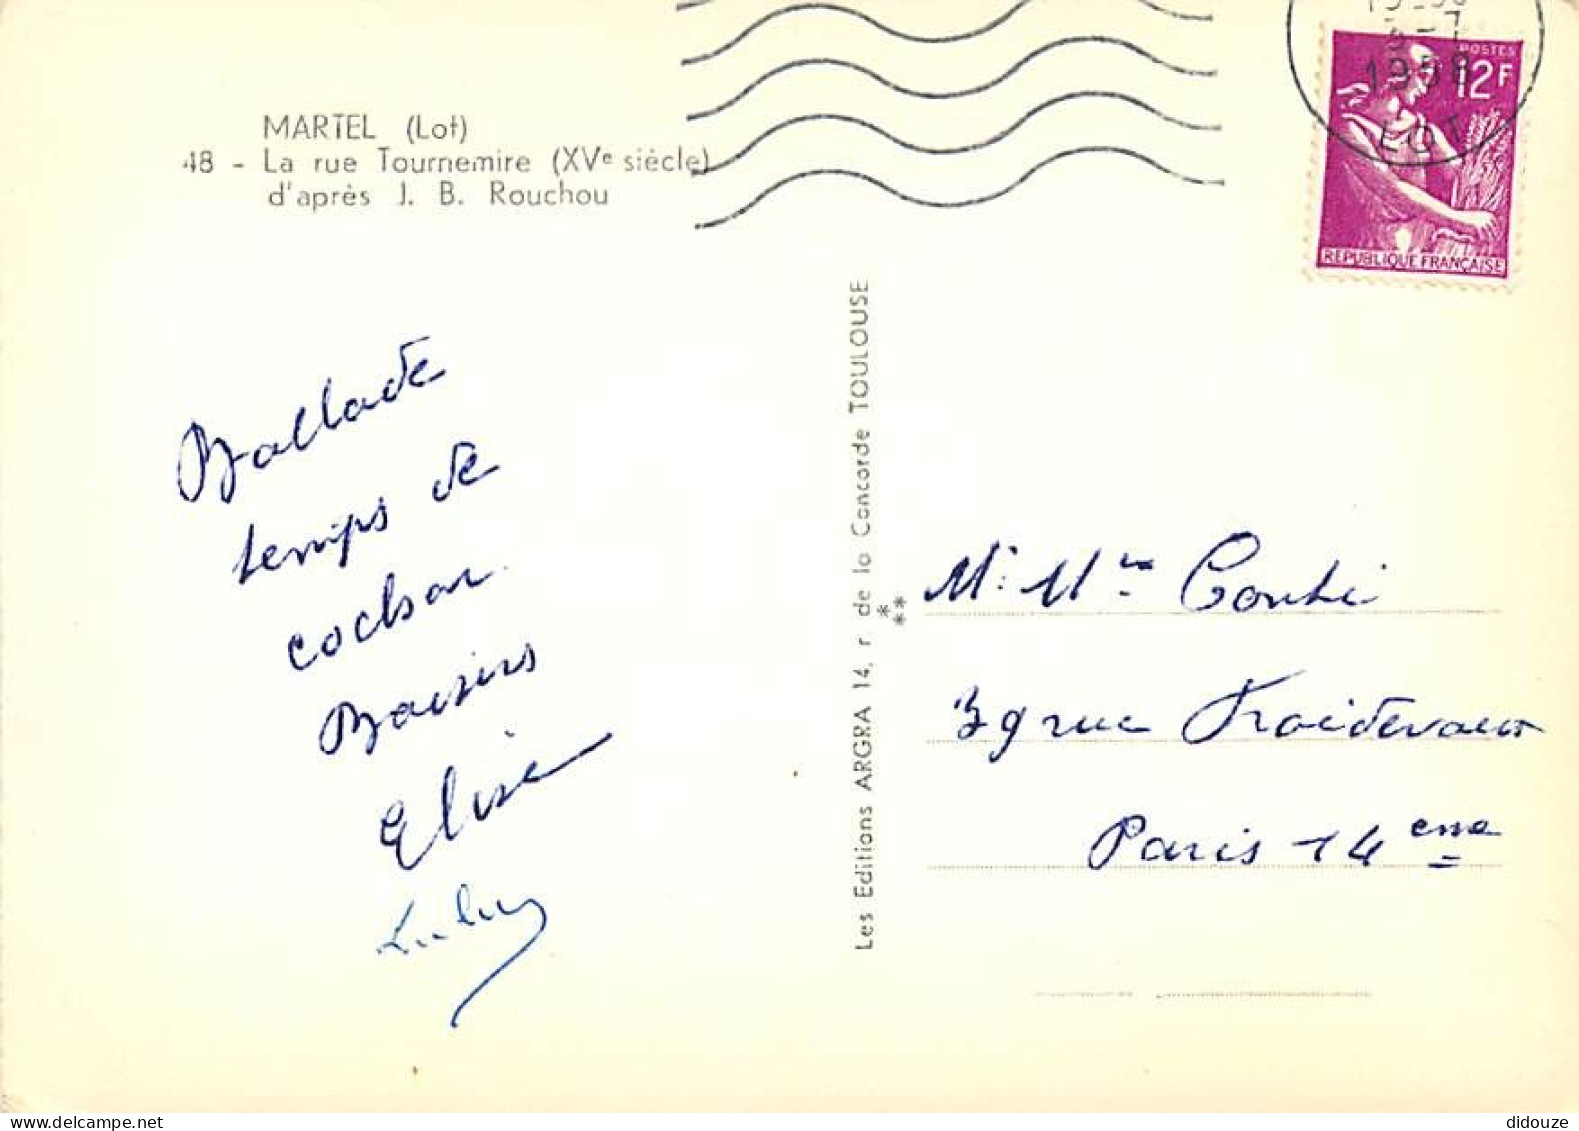 MARTEL (Lot)
48 - La rue Tournemire (XVe siècle)
d'après J. B. Rouchou
1958
LOT
POSTES
12F
REPUBLIQUE FRANÇAISE
Ballade
temps de
cochon
Baisers
Elise
Les Editions ARGRA 14, r. de la Concorde TOULOUSE
M. Mme Conti
39 rue Froidevaux
Paris 14eme
delcampe.net
didouze